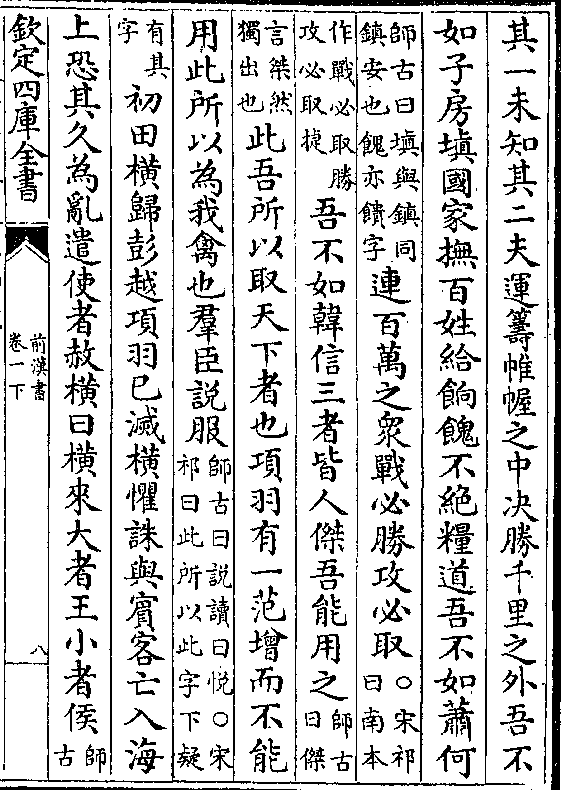 其一未知其二夫運籌帷幄之中决勝千里之外吾不
如子房塡國家撫百姓給餉餽不絕糧道吾不如蕭何
師古曰塡與鎮同
鎮安也餽亦饋字
連百萬之衆戰必勝攻必取
○宋祁
曰南本
作戰必取勝
攻必取捷
吾不如韓信三者皆人傑吾能用之
師古
曰傑
言桀然
獨出也
此吾所以取天下者也項羽有一范增而不能
用此所以為我禽也羣臣説服
師古曰説讀曰悅○宋
祁曰此所以此字下疑
有其
字
初田橫歸彭越項羽已滅橫懼誅與賓客亡入海
上恐其久為亂遣使者赦橫曰橫來大者王小者侯
師
古
欽定四庫全書
前漢書
卷一下
八